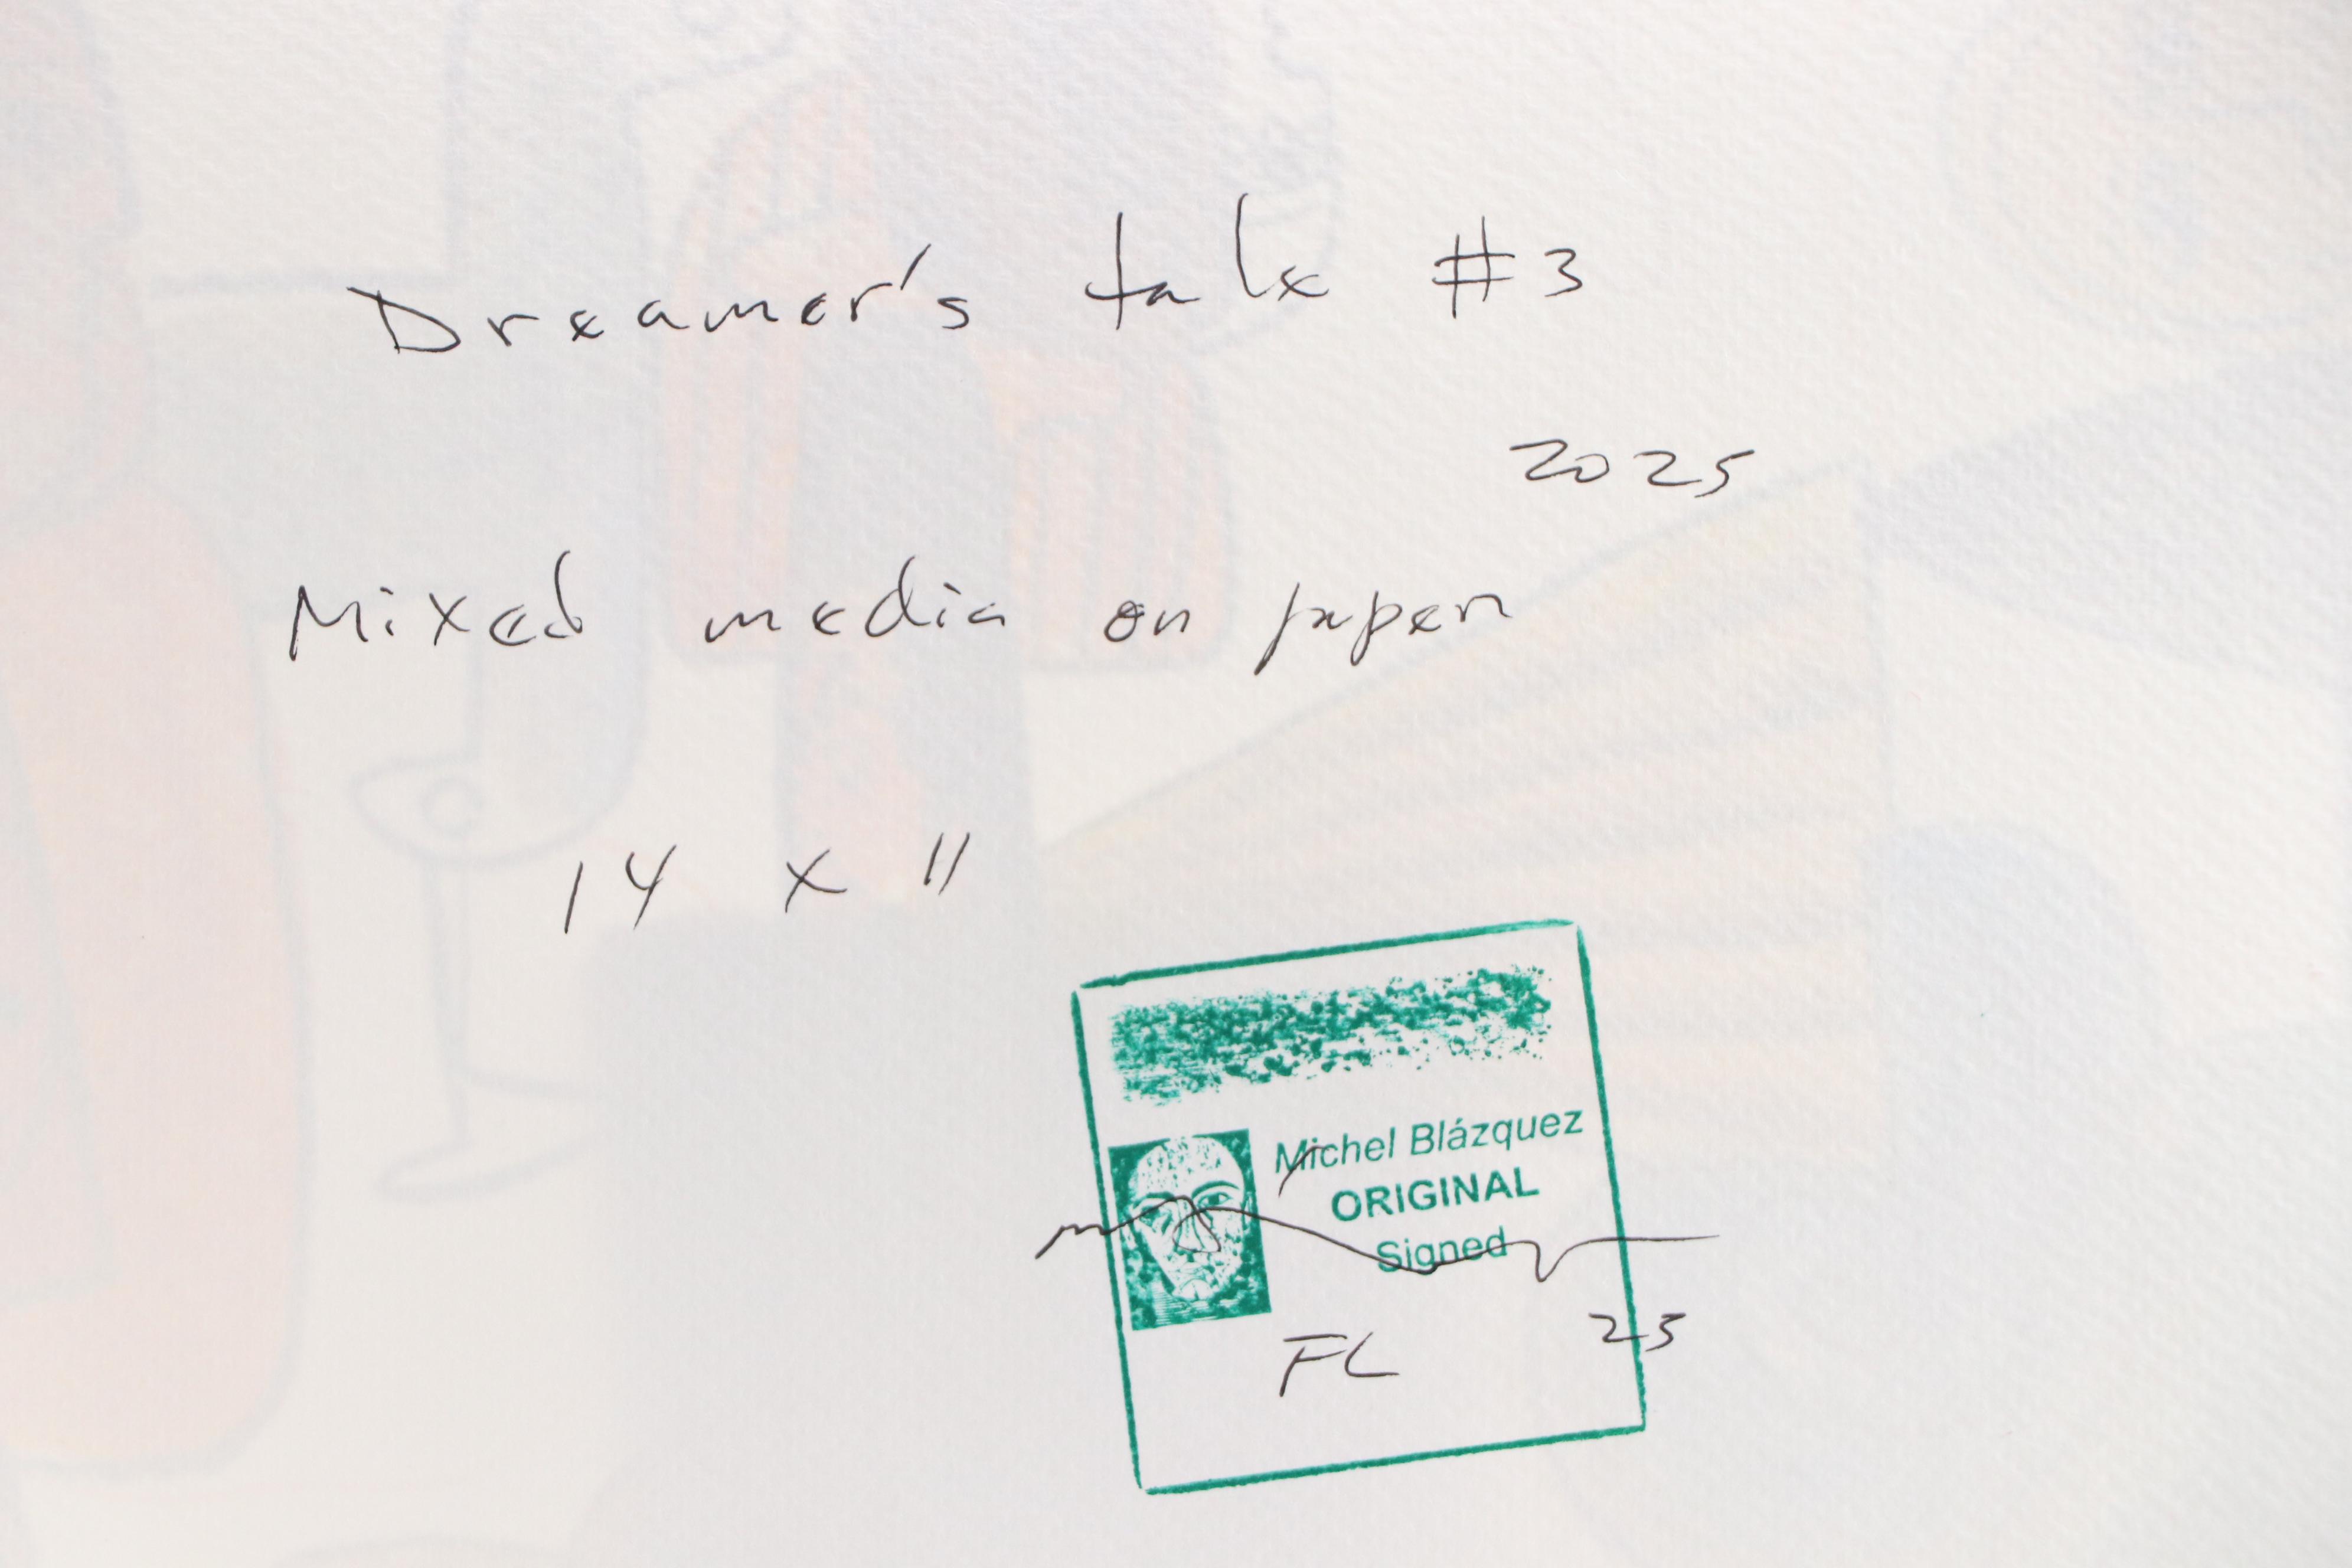 Dreamer's talk #3
2025
Mixed media on paper
14 x 11
Michel Blázquez
ORIGINAL
Signed
FL
25